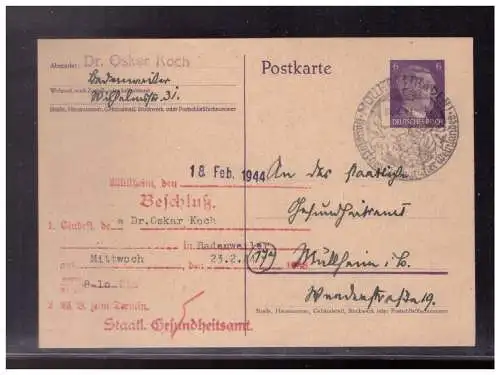 Absender: Dr. Oskar Koch
Badenweiler
Wilhelmstr. 31.
Straße, Hausnummer, Gebäudeteil, Stockwerk oder Postschließfachnummer
Postkarte
6 6
DEUTSCHES REICH
18 Feb. 1944
Müllheim, den
Beschluß.
1. Einbest. de Dr. Oskar Koch
in Badenweiler
Mittwoch den 23.2.
8-10
2. W. V. zum Termin.
Staatl. Gesundheitsamt.
An das staatliche
Gesundheitsamt
Müllheim i. B.
Werderstraße 19.
Straße, Hausnummer, Gebäudeteil, Stockwerk oder Postschließfachnummer